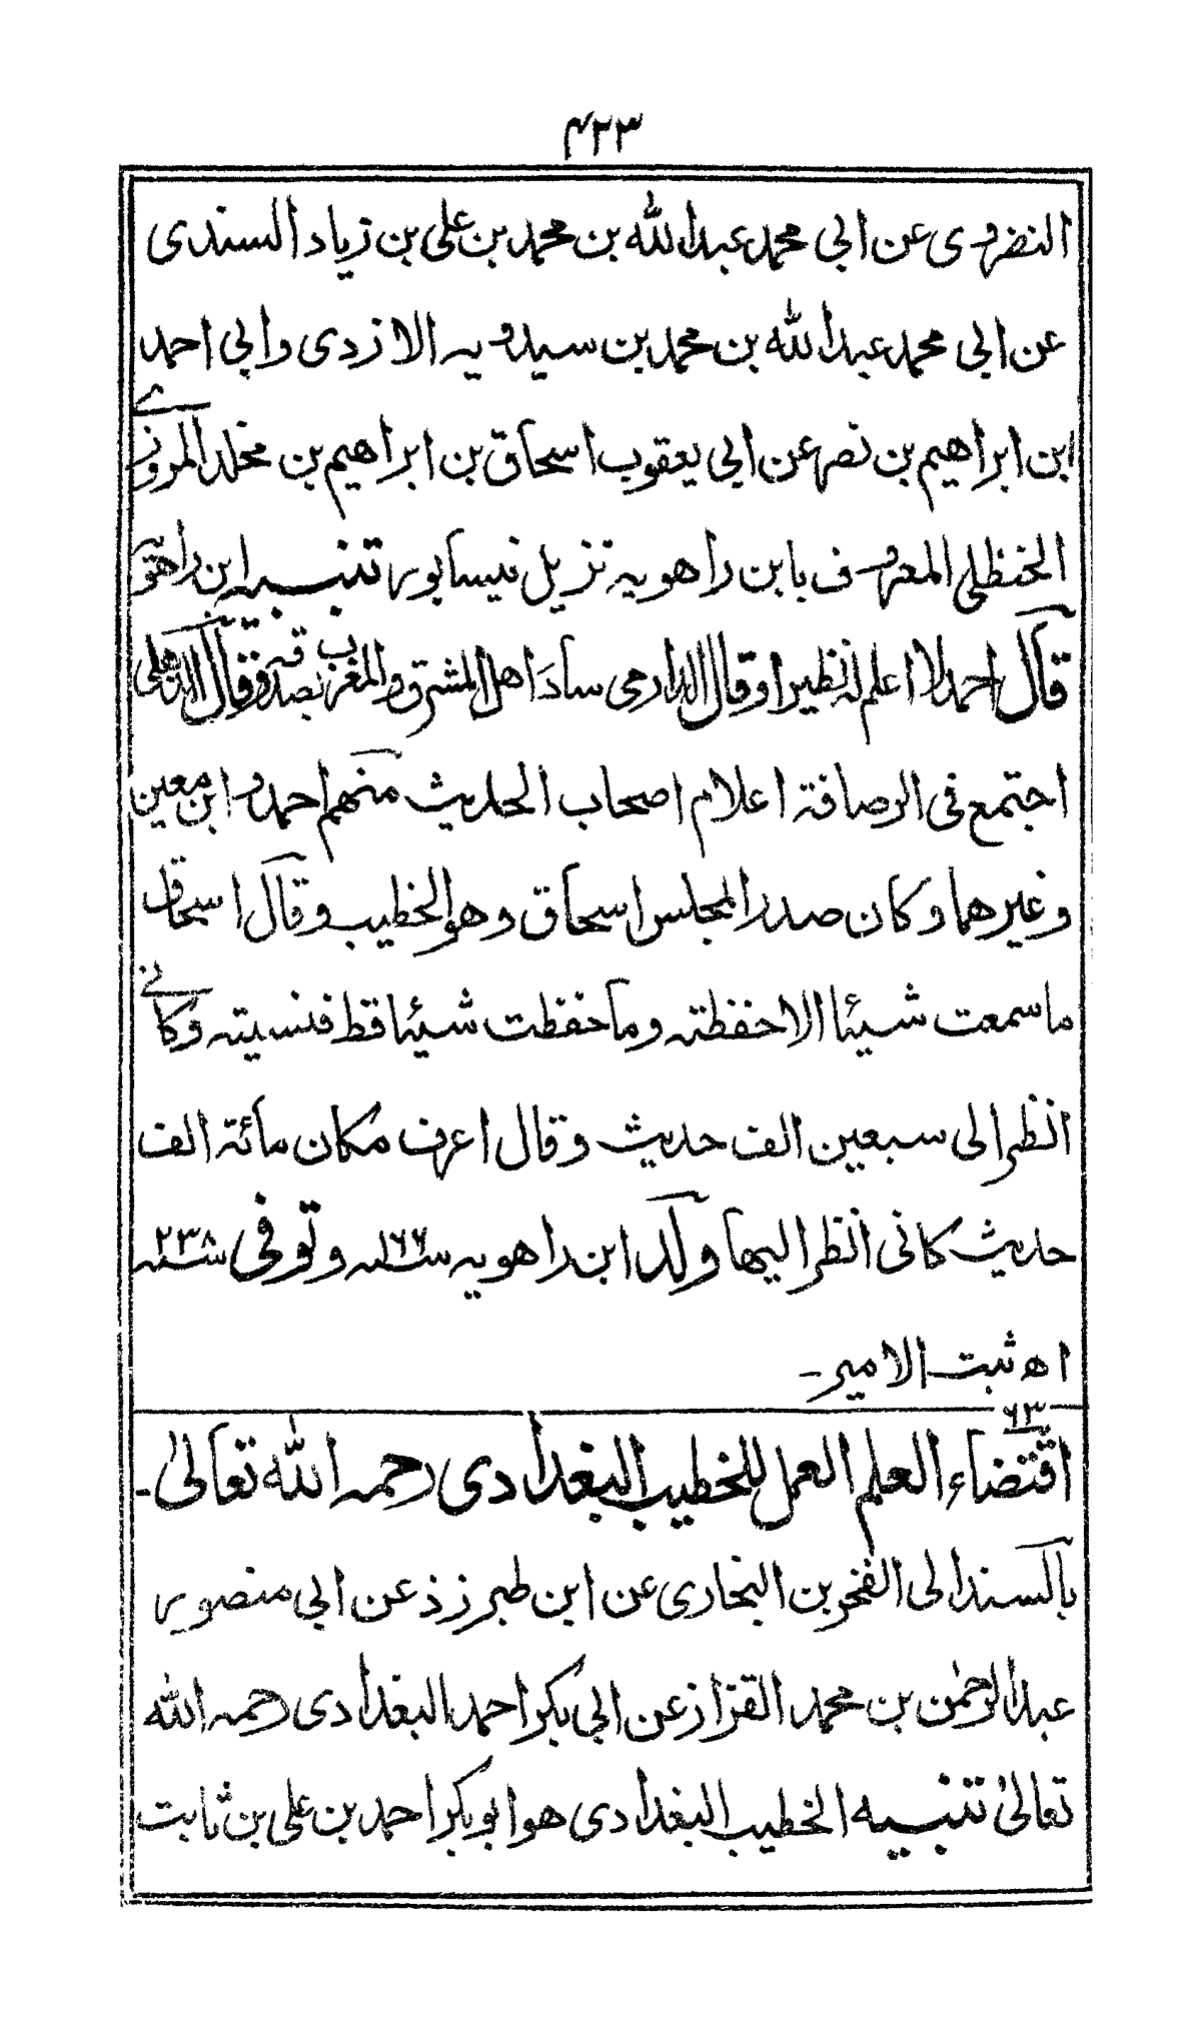 ۴۲۳
النضروی عن ابی محمد عبد الله بن محمد بن علی بن زیاد السندی
عن ابی محمد عبد الله بن محمد بن سیدویہ الازدی وابی احمد
ابن ابراهیم بن نصر عن ابی یعقوب اسحاق بن ابراهیم بن مخلد المروزی
الحنظلی المعروف بابن راهویہ نزیل نیسابور تنبیہ ابن راهویہ
قال احمد لا اعلم لہ نظیرا وقال الدارمی سادَ اهل المشرق والمغرب بصدقہ وقال الذهلی
اجتمع فی الرصافة اعلام اصحاب الحدیث منهم احمد وابن معین
وغیرهما وکان صدر المجلس اسحاق وهو الخطیب وقال اسحاق
ما سمعت شیئا الا حفظتہ وما حفظت شیئا قط فنسیتہ وکانی
انظر الی سبعین الف حدیث وقال اعرف مکان مائة الف
حدیث کانی انظر الیها ولد ابن راهویہ سنہ ۱۶۶ وتوفی سنہ ۲۳۸
اھ ثبت الامیر۔
۶۳
اقتضاء العلم العمل للخطیب البغدادی رحمہ اللہ تعالیٰ۔
بالسند الی الفخر بن البخاری عن ابن طبرزذ عن ابی منصور
عبد الرحمٰن بن محمد القزاز عن ابی بکر احمد البغدادی رحمہ اللہ
تعالیٰ تنبیہ الخطیب البغدادی هو ابو بکر احمد بن علی بن ثابت